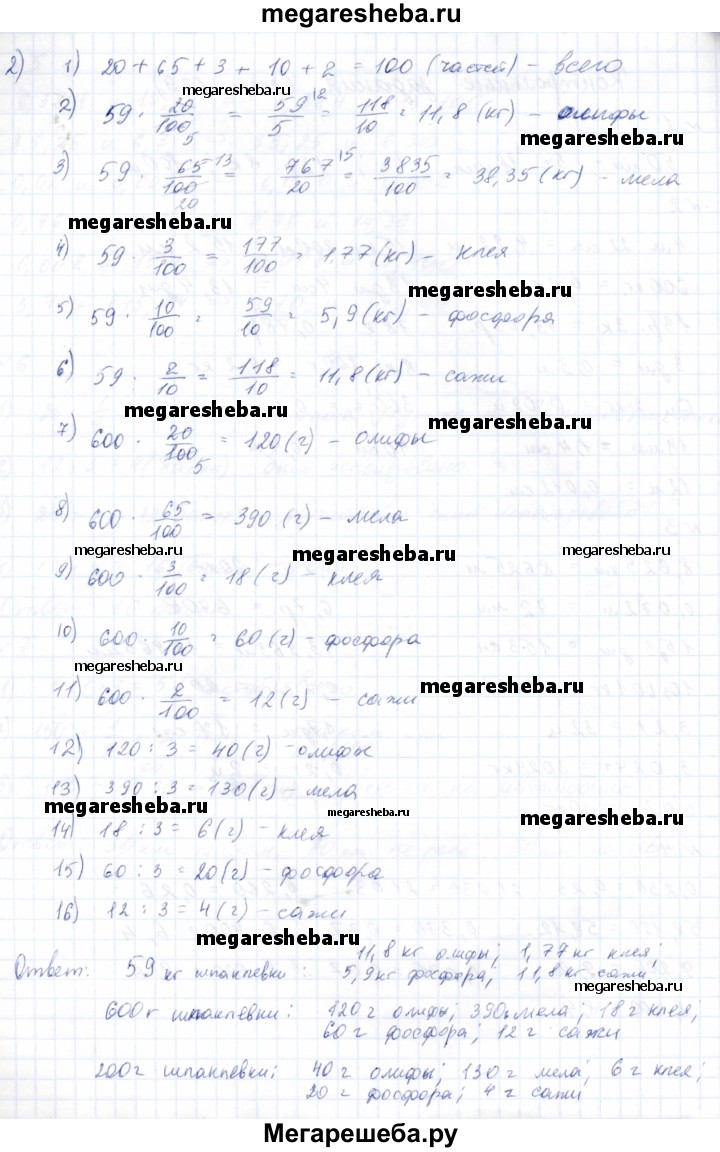 megaresheba.ru
2) 1) 20 + 65 + 3 + 10 + 2 = 100 (частей) - всего
megaresheba.ru
2) 59 · 20/100 5 = 59/5 12 = 118/10 = 11,8 (кг) - олифы
megaresheba.ru
3) 59 · 65/100 13 20 = 767/20 15 = 3835/100 = 38,35 (кг) - мела
megaresheba.ru
4) 59 · 3/100 = 177/100 = 1,77 (кг) - клея
megaresheba.ru
5) 59 · 10/100 = 59/10 = 5,9 (кг) - фосфора
6) 59 · 2/10 = 118/10 = 11,8 (кг) - сажи
megaresheba.ru
megaresheba.ru
7) 600 · 20/100 5 = 120 (г) - олифы
8) 600 · 65/100 = 390 (г) - мела
megaresheba.ru megaresheba.ru megaresheba.ru
9) 600 · 3/100 = 18 (г) - клея
10) 600 · 10/100 = 60 (г) - фосфора
megaresheba.ru
11) 600 · 2/100 = 12 (г) - сажи
megaresheba.ru
12) 120 : 3 = 40 (г) - олифы
13) 390 : 3 = 130 (г) - мела
megaresheba.ru megaresheba.ru megaresheba.ru
14) 18 : 3 = 6 (г) - клея
15) 60 : 3 = 20 (г) - фосфора
16) 12 : 3 = 4 (г) - сажи
megaresheba.ru
Ответ: 59 кг шпанлевки : 11,8 кг олифы; 1,77 кг клея;
5,9 кг фосфора; 11,8 кг сажи
megaresheba.ru
600 г шпанлевки: 120 г олифы; 390 г мела; 18 г клея;
60 г фосфора; 12 г сажи
200 г шпанлевки; 40 г олифы; 130 г мела; 6 г клея;
20 г фосфора; 4 г сажи
Мегарешеба.ру